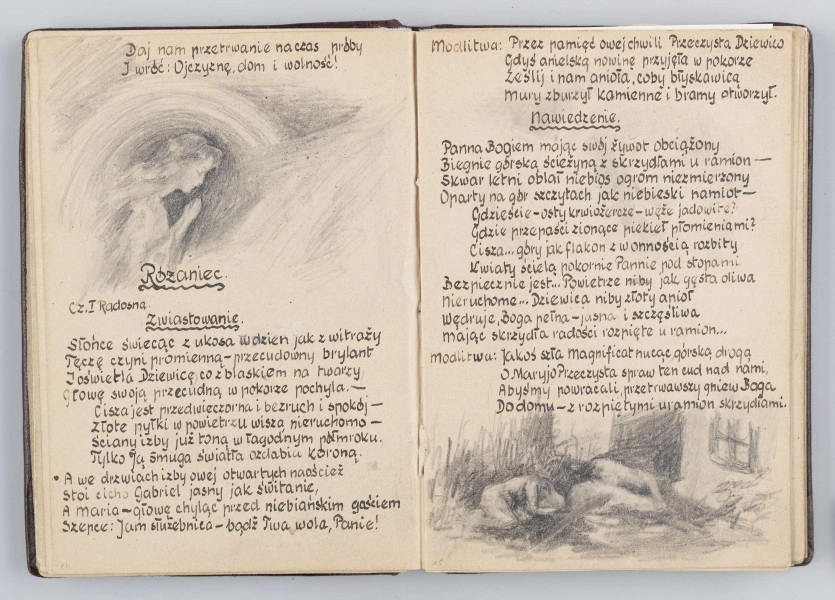 Daj nam przetrwanie na czas próby
I wróć: Ojczyznę, dom i wolność!
Różaniec.
Cz. I Radosna.
Zwiastowanie.
Słońce świecąc z ukosa w dzień jak z witraży
Tęczę czyni promienną - przecudowny brylant
I oświetla Dziewicę co z blaskiem na twarzy
Głowę swoją przecudną w pokorze pochyla. —
Cisza jest przedwieczorna i bezruch i spokój —
Złote pyłki w powietrzu wiszą nieruchomo —
Ściany izby już toną w łagodnym półmroku.
Tylko Ją smuga światła ozdabia koroną.
A we drzwiach izby owej otwartych naoścież
Stoi cicho Gabriel jasny jak świtanie,
A Maria – głowę chyląc przed niebiańskim gościem
Szepce: Jam służebnica – bądź Twa wola, Panie!
Modlitwa: Przez pamięć owej chwili Przeczysta Dziewico
Gdyś anielską nowinę przyjęła w pokorze
Ześlij i nam anioła, coby błyskawicą
Mury zburzył kamienne i bramy otworzył.
Nawiedzenie.
Panna Bogiem mając swój żywot obciążony
Biegnie górską ścieżyną z skrzydłami u ramion —
Skwar letni oblał niebios ogrom niezmierzony
Oparty na gór szczytach jak niebieski namiot —
Gdzieście – osty krwiożercze – węże jadowite?
Gdzie przepaści zionące piekieł płomieniami?
Cisza... góry jak flakon z wonnością rozbity
Kwiaty ścielą pokornie Pannie pod stopami
Bezpiecznie jest... Powietrze niby jak gęsta oliwa
Nieruchome... Dziewica niby złoty anioł
Wędruje, Boga pełna – jasna i szczęśliwa
Mając skrzydła radości rozpięte u ramion...
Modlitwa: Jakoś szła Magnificat nucąc górską drogą
O Maryjo Przeczysta spraw ten cud nad nami,
Abyśmy powracali, przetrwawszy gniew Boga
Do domu – z rozpiętymi u ramion skrzydłami.